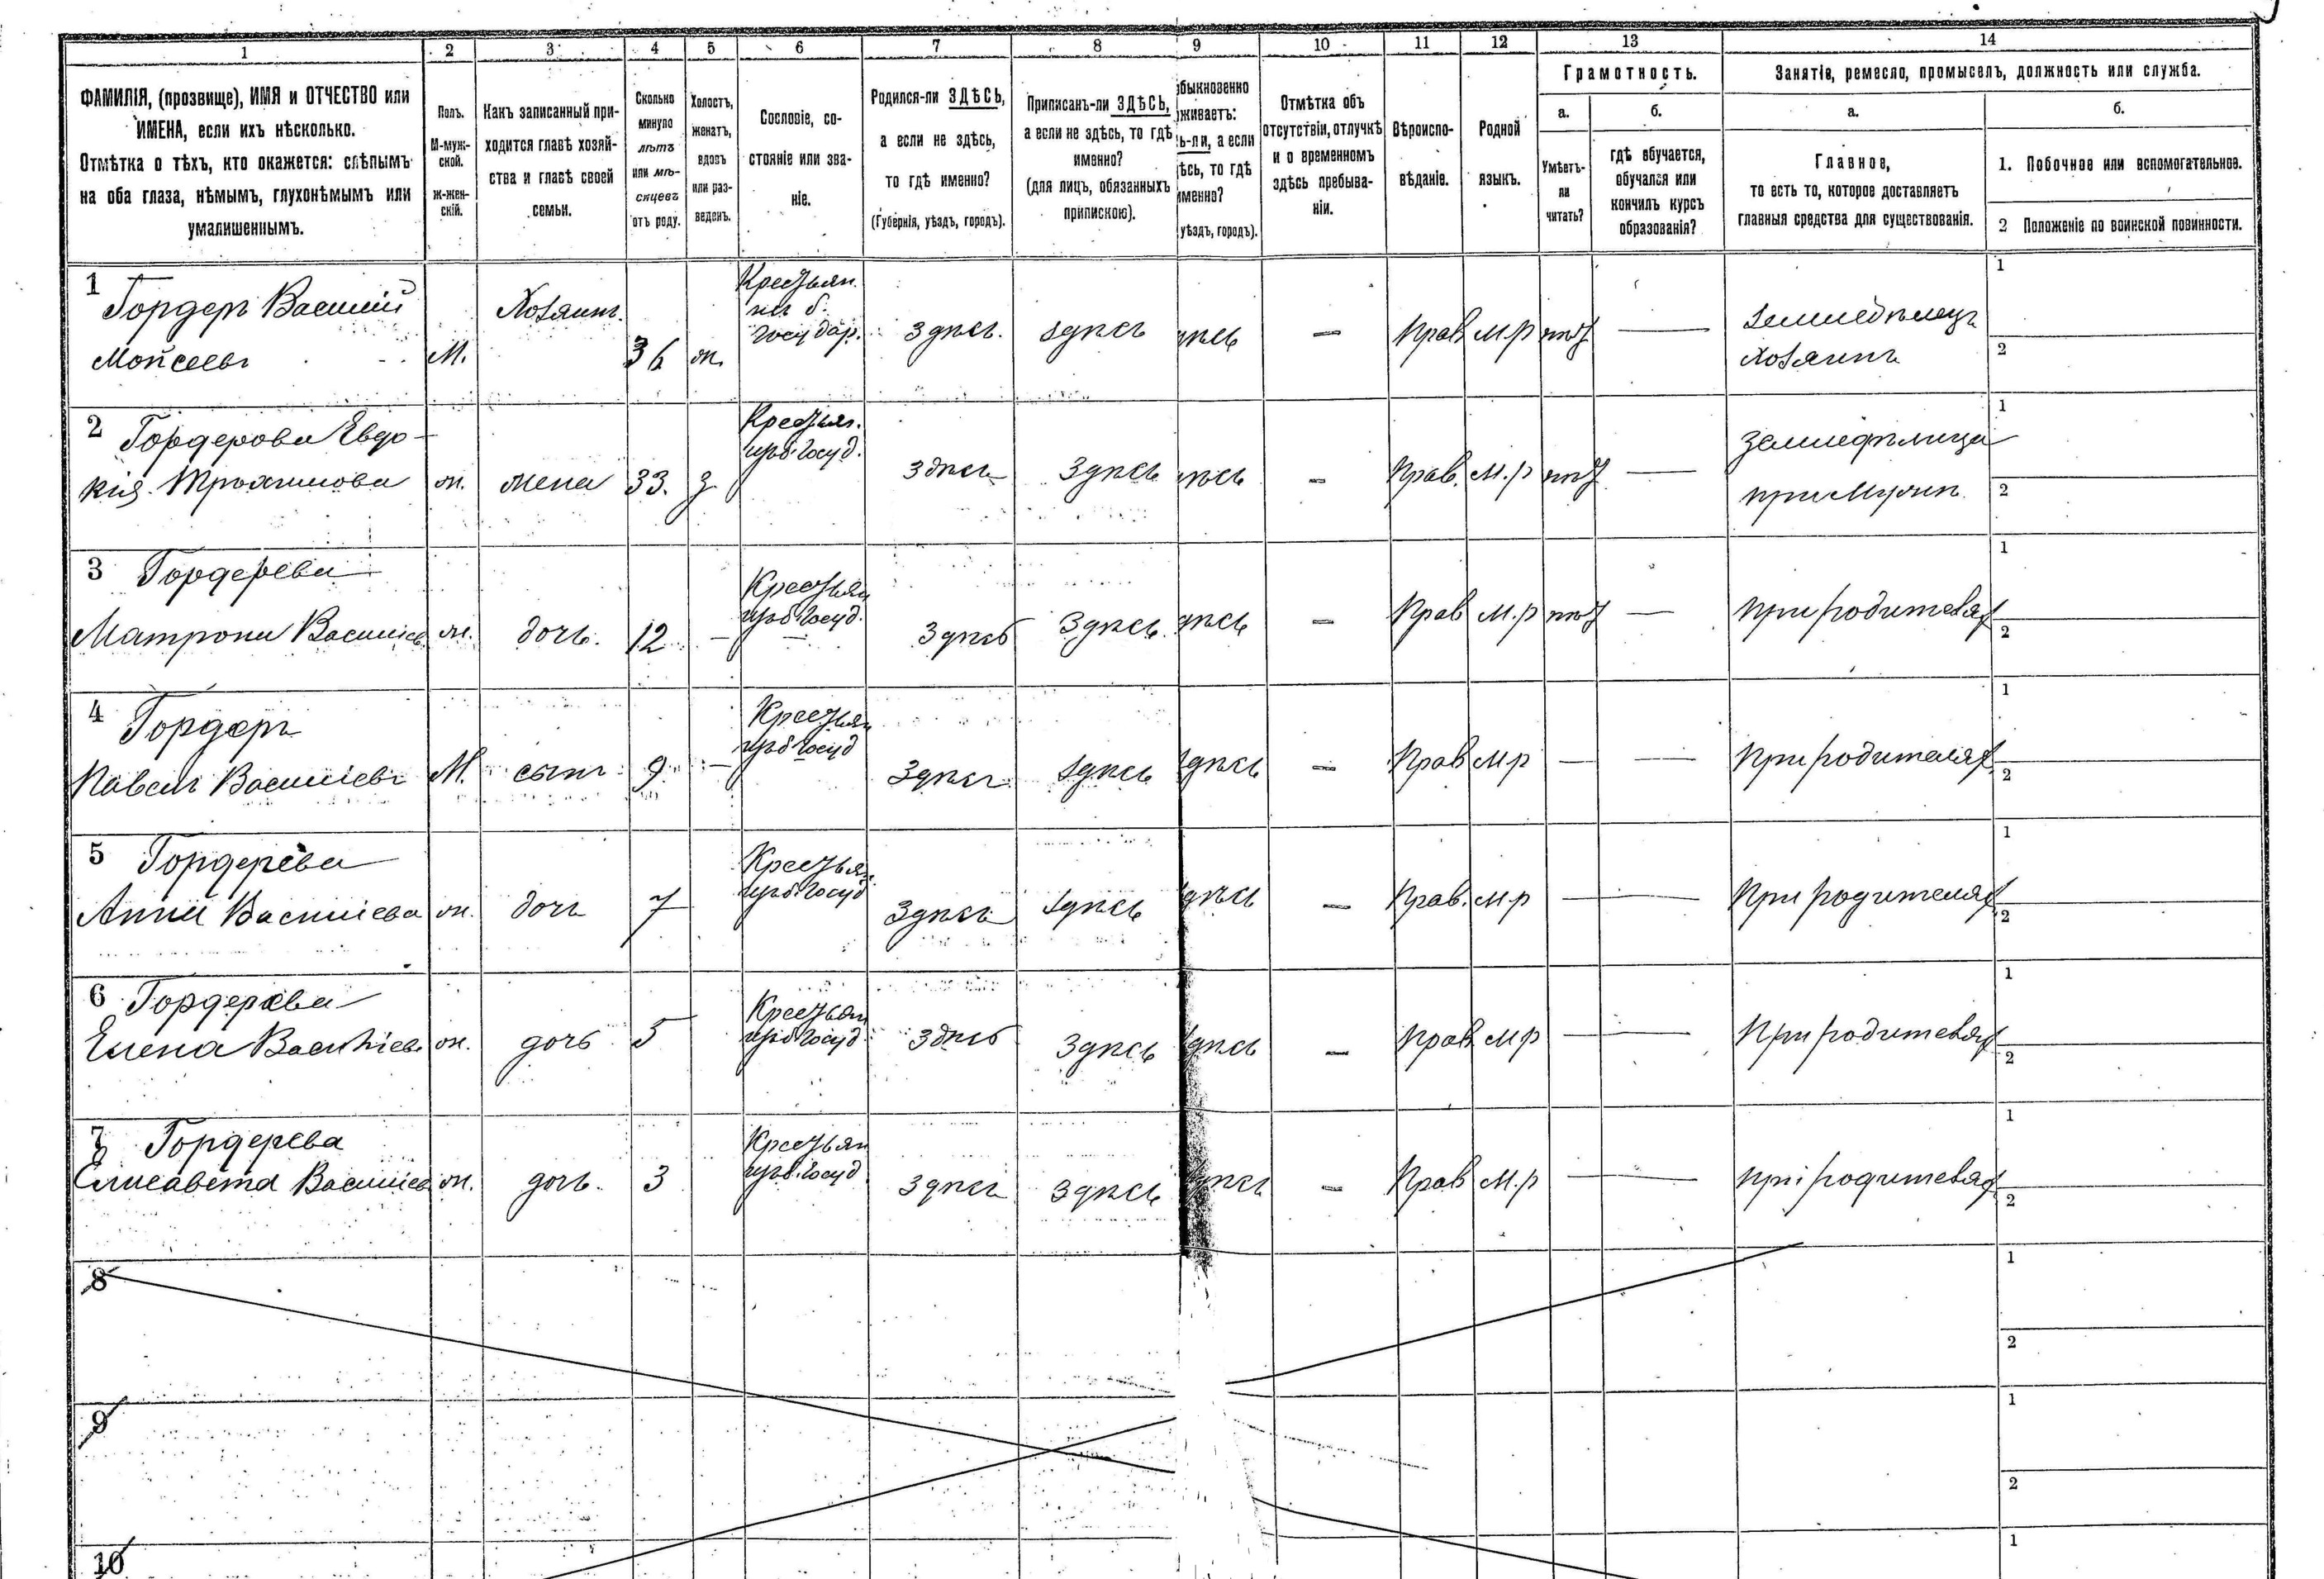 1 2 3 4 5 6 7 8 9 10 11 12 13 14
ФАМИЛІЯ, (прозвище), ИМЯ и ОТЧЕСТВО или
ИМЕНА, если ихъ нѣсколько.
Отмѣтка о тѣхъ, кто окажется: слѣпымъ
на оба глаза, нѣмымъ, глухонѣмымъ или
умалишеннымъ.
Полъ.
М-муж-
ской.
ж-жен-
скій.
Какъ записанный при-
ходится главѣ хозяй-
ства и главѣ своей
семьи.
Сколько
минуло
лѣтъ
или мѣ-
сяцевъ
отъ роду.
Холостъ,
женатъ,
вдовъ
или раз-
веденъ.
Сословіе, со-
стояніе или зва-
ніе.
Родился-ли ЗДѢСЬ,
а если не здѣсь,
то гдѣ именно?
(Губернія, уѣздъ, городъ).
Приписанъ-ли ЗДѢСЬ,
а если не здѣсь, то гдѣ
именно?
(для лицъ, обязанныхъ
припискою).
быкновенно
живаетъ:
ь-ли, а если
ѣсь, то гдѣ
менно?
уѣздъ, городъ).
Отмѣтка объ
отсутствіи, отлучкѣ
и о временномъ
здѣсь пребыва-
ніи.
Вѣроиспо-
вѣданіе.
Родной
языкъ.
Грамотность.
а.
Умѣетъ-
ли
читать?
б.
гдѣ обучается,
обучался или
кончилъ курсъ
образованія?
Занятіе, ремесло, промыселъ, должность или служба.
а.
Главное,
то есть то, которое доставляетъ
главныя средства для существованія.
б.
1. Побочное или вспомогательное.
2 Положеніе по воинской повинности.
1 Гордеръ Василій
Мойсеевъ
М. Хозяинъ. 36 ж.
Крестьян.
изъ б.
государ.
здѣсь. здѣсь ѣсь — Прав М.р нѣт —
Земледѣлецъ
Хозяинъ
1
2
2 Гордерова Евдо-
кія
ж. жена 33. з
Крестьян.
изъ б. госуд.
здѣсь Здѣсь ѣсь - Прав. М.р нѣт —
Земледѣлица
при Мужѣ
1
2
3 Гордерева
Матрона Василіев.
ж. дочь. 12 —
Крестьян
изъ б госуд.
Здѣсь Здѣсь. дѣсь — Прав М.р нѣт — При родителях
1
2
4 Гордеръ
Павелъ Василіевъ
М. сынъ 9 —
Крестьян
изъ б госуд
Здѣсь здѣсь здѣсь — Прав М р — — При родителях
1
2
5 Гордерева
Анна Василіева
ж. дочь 7
Крестьян
изъ б госуд
Здѣсь здѣсь здѣсь — Прав. М.р — При родителях
1
2
6 Гордерева
Елена Василіев
ж. дочь 5
Крестьян
изъ б госуд
Здѣсь Здѣсь здѣсь — Прав М р — При родителях
1
2
7 Гордерева
Елисавета Василіев
ж. дочь. 3
Крестьян
изъ б. госуд
Здѣсь Здѣсь здѣсь — Прав М.р — При родителях
1
2
8
1
2
9
1
2
10
1